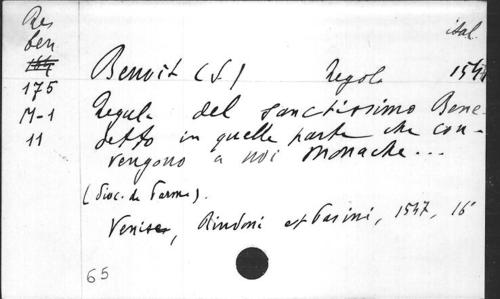 Res
ben
175
M-1
11
ital.
Benoit (S) Regola 1547
Regula del sanctissimo Bene-
detto in quelle parte che con-
vengono a noi monache...
(dioc. de Parme).
Venise, Rindoni et Pasini, 1547, 16°
65